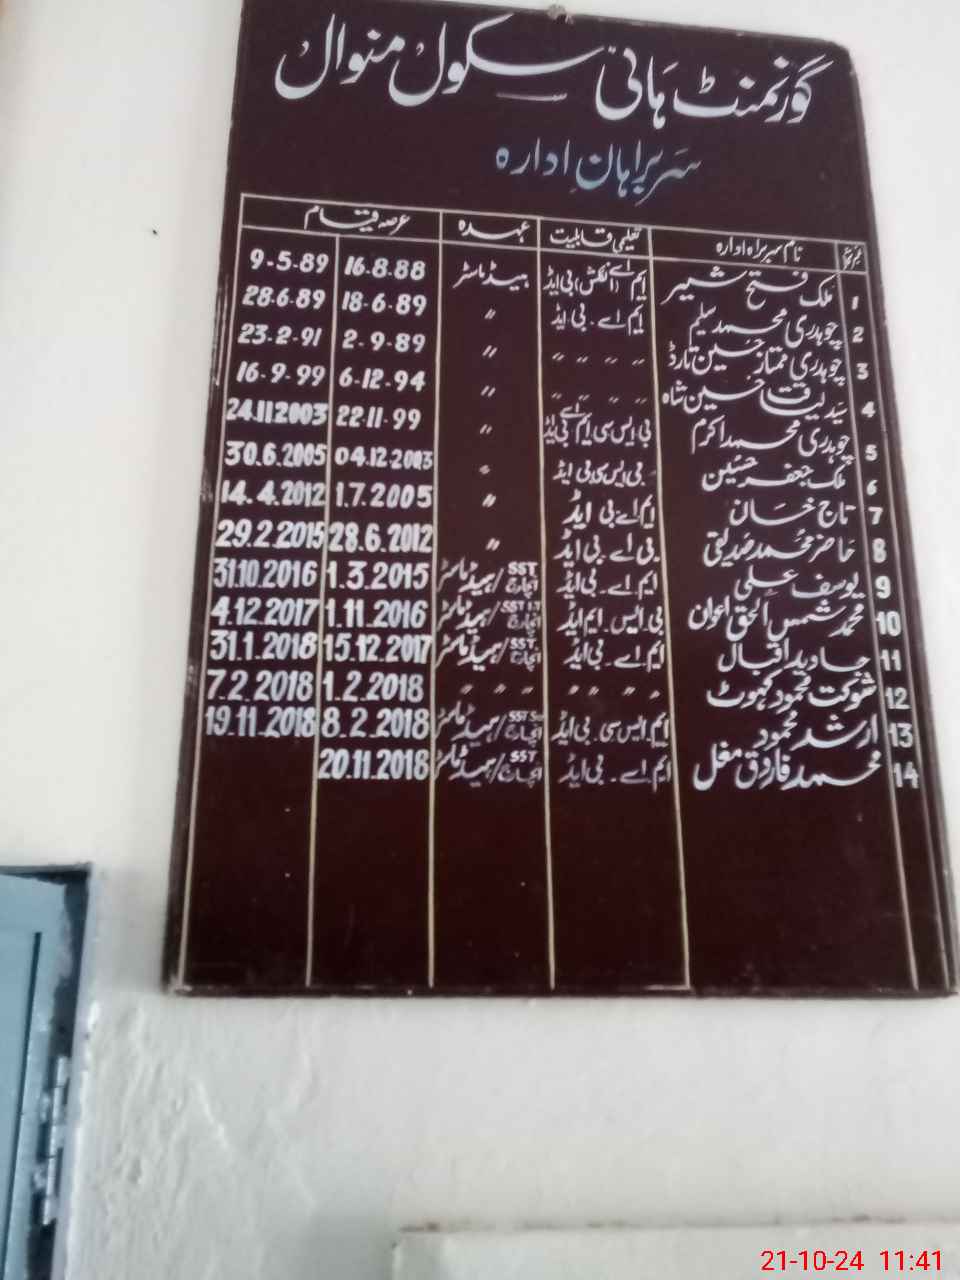 گورنمنٹ ہائی سکول منوال
سربراہان ادارہ
نمبر شمار نام سربراہ ادارہ تعلیمی قابلیت عہدہ عرصہ قیام
1 ملک فتح شیر ایم اے (انگلش) بی ایڈ ہیڈ ماسٹر 16-8-88 9-5-89
2 چوہدری محمد سلیم ایم اے - بی ایڈ 〃 18-6-89 28-6-89
3 چوہدری ممتاز حسین تارڈ 〃 〃 〃 〃 〃 2-9-89 23-2-91
4 سید لیاقت حسین شاہ 〃 〃 〃 〃 〃 6-12-94 16-9-99
5 چوہدری محمد اکرم بی ایس سی ایم اے بی ایڈ 〃 22-11-99 24.11.2003
6 ملک جعفر حسین بی ایس سی بی ایڈ 〃 04.12.2003 30.6.2005
7 تاج خان ایم اے بی ایڈ 〃 1.7.2005 14.4.2012
8 حاضر محمد صدیقی بی اے بی ایڈ 〃 28.6.2012 29.2.2015
9 یوسف علی ایم اے - بی ایڈ SST انچارج/ہیڈ ماسٹر 1.3.2015 31.10.2016
10 محمد شمس الحق اعوان بی ایس - ایم ایڈ SST I.T انچارج/ہیڈ ماسٹر 1.11.2016 4.12.2017
11 جاوید اقبال ایم اے - بی ایڈ SST. انچارج/ہیڈ ماسٹر 15.12.2017 31.1.2018
12 شوکت محمود کہوٹ 〃 〃 〃 〃 〃 〃 1.2.2018 7.2.2018
13 ارشد محمود ایم ایس سی - بی ایڈ SST Sc انچارج/ہیڈ ماسٹر 8.2.2018 19.11.2018
14 محمد فاروق مغل ایم اے - بی ایڈ SST انچارج/ہیڈ ماسٹر 20.11.2018
21-10-24 11:41